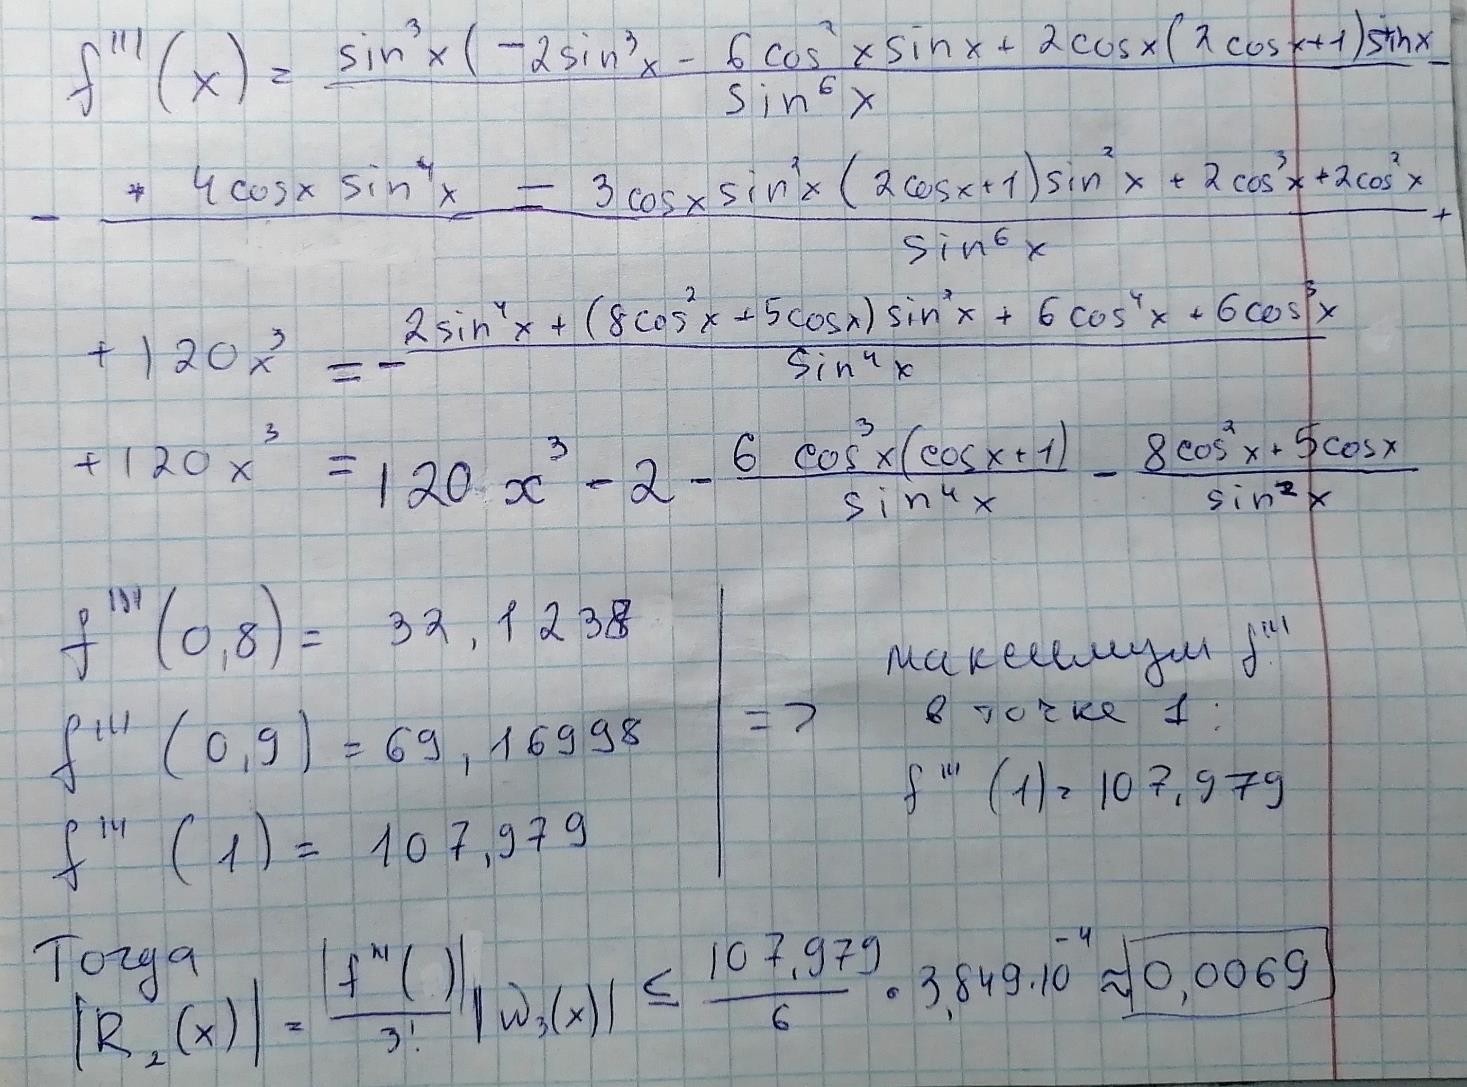 f'''(x) = sin³x(-2sin³x - 6cos²x sinx + 2cosx(2cosx+1)sinx / sin⁶x -
- * 4cosx sin⁴x = 3cosx sin²x(2cosx+1)sin²x + 2cos³x + 2cos²x / sin⁶x +
+120x³ = - 2sin⁴x + (8cos²x + 5cosx)sin²x + 6cos⁴x + 6cos³x / sin⁴x
+120x³ = 120x³ - 2 - 6cos³x(cosx+1) / sin⁴x - 8cos²x + 5cosx / sin²x
f'''(0,8) = 32,1238
f'''(0,9) = 69,16998
f'''(1) = 107,979
=> максимум f'''
в точке 1:
f'''(1) = 107,979
Тогда
|R₂(x)| = |f'''( )| / 3! |W₃(x)| ≤ 107,979 / 6 · 3,849·10⁻⁴ ≈ 0,0069